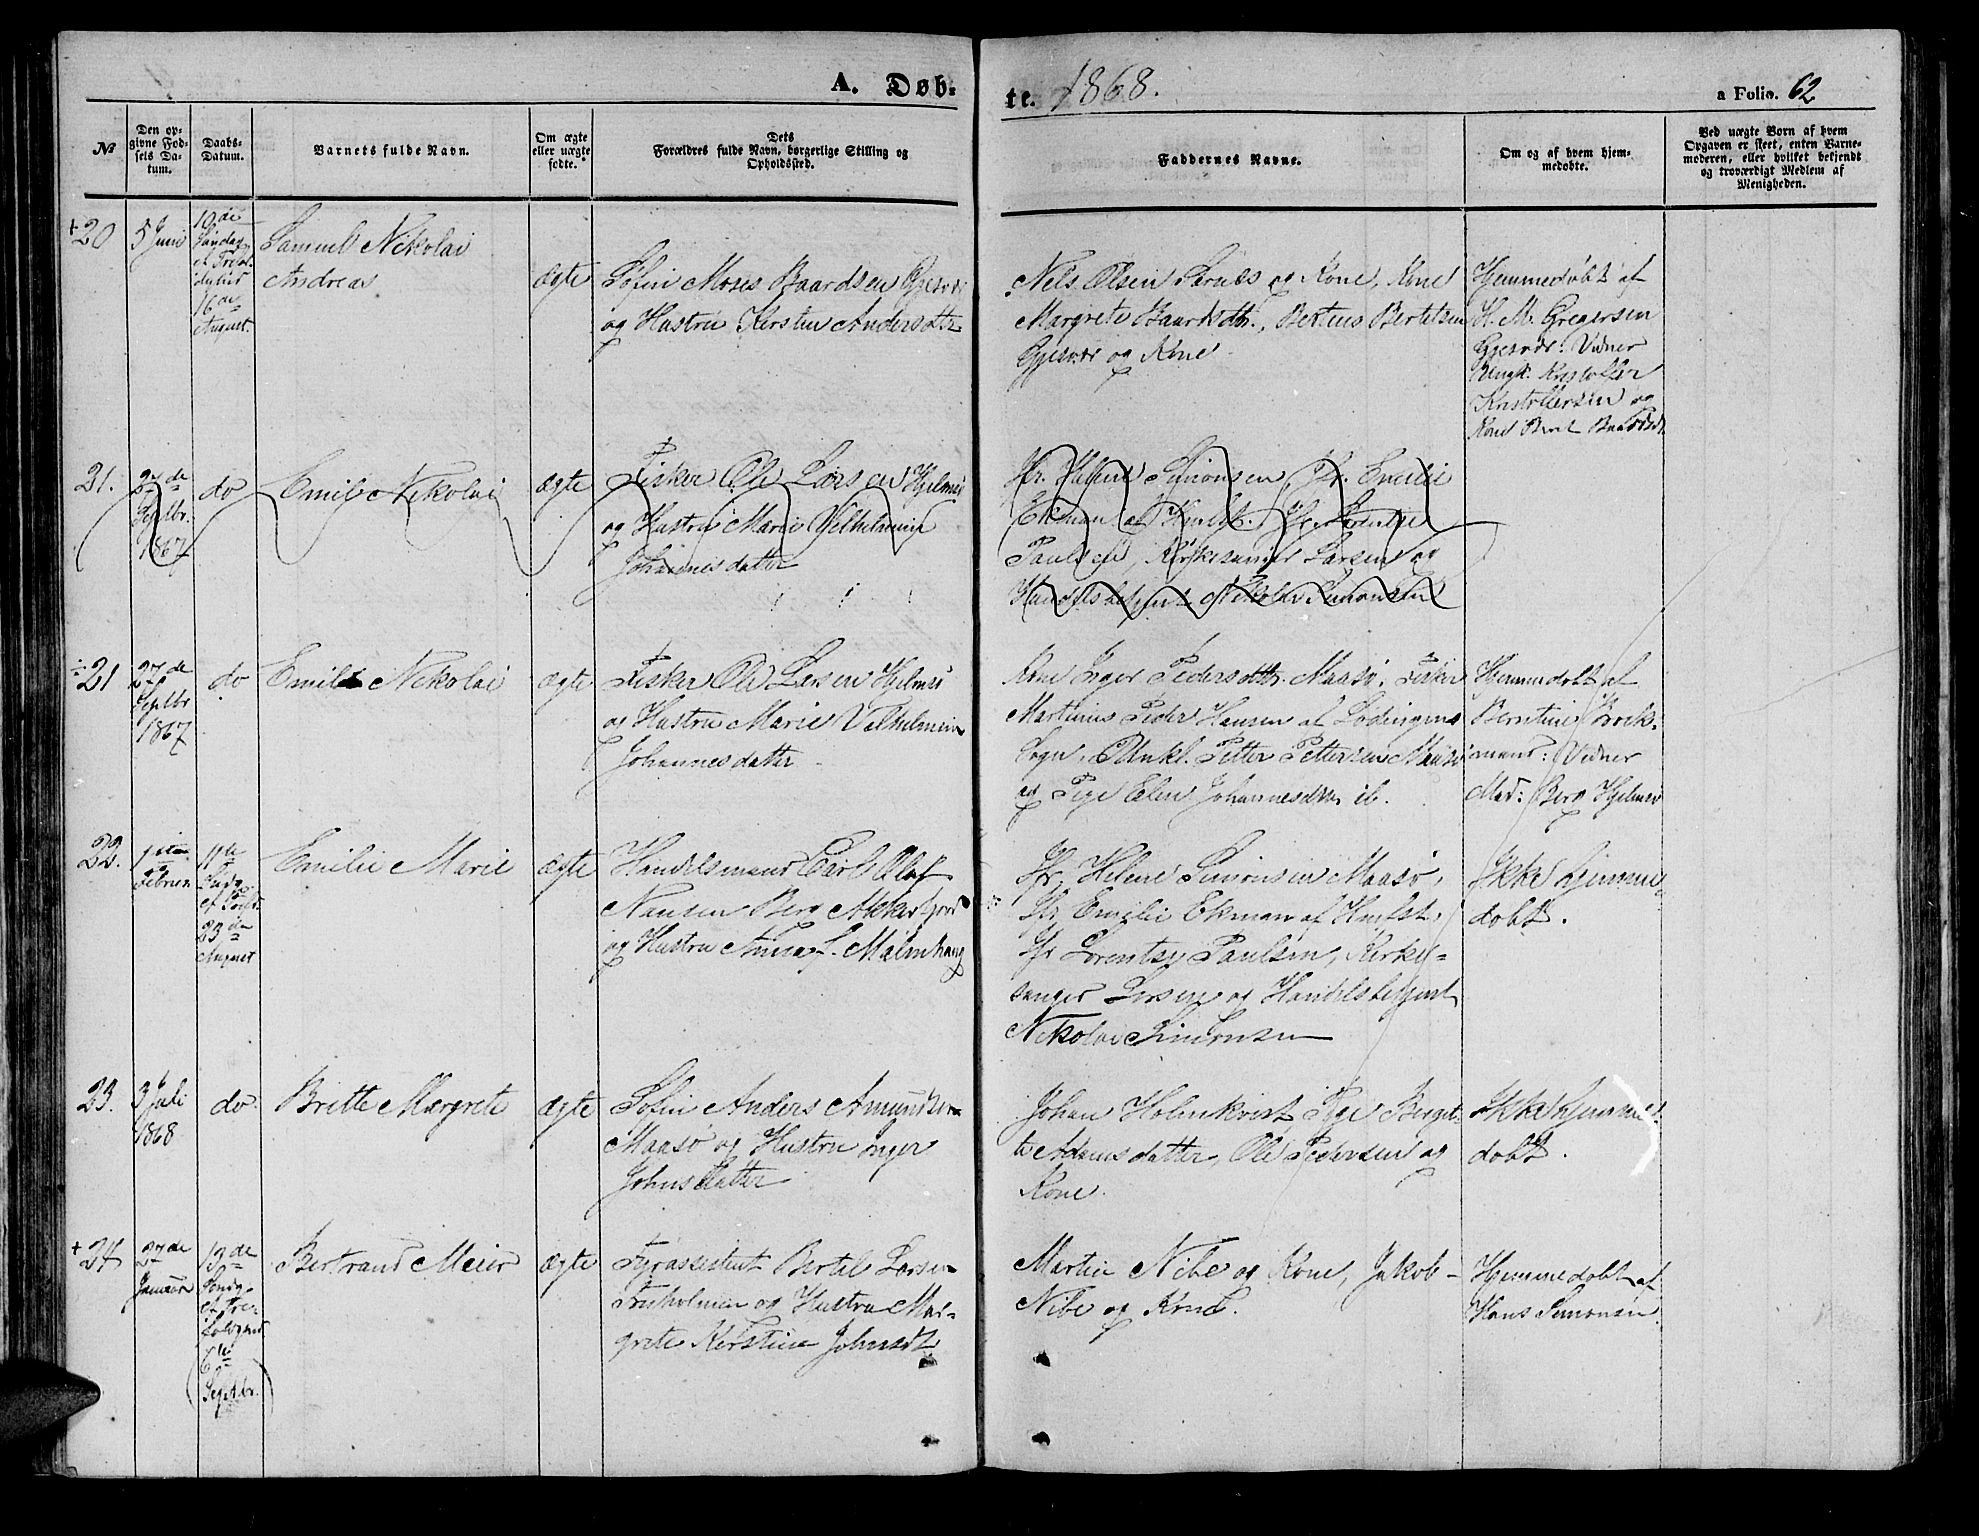 A. Døb-
te. 1868.
a Folio. 62
No
Den op-
givne Fød-
sels Da-
tum.
Daabs-
Datum.
Barnets fulde Navn.
Om ægte
eller uægte
fødte.
Dets
Forældres fulde Navn, borgerlige Stilling og
Opholdssted.
Faddernes Navne.
Om og af hvem hjem-
medøbte.
Ved uægte Børn af hvem
Opgaven er skeet, enten Barne-
moderen, eller hvilket bekjendt
og troværdigt Medlem af
Menigheden.
+20
5 Juni
10de
Søndag
16de
August.
Samuel Nikolai
Andreas
ægte
Søfin Moses Baardsen Gjesvær
og Hustru Kersten Andersdttr
Nels Olsen Sarnes og Kone, Kone
Margrete Baardsdtr., Berteus Bertelsen
Gjesvær og Kone
Hjemmedøbt af
H. M. Gregersen
Gjesvær: Vidner
Ungk. Kristoffer
Kristoffersen og
Kone Berit
21.
27de
Septbr.
1867
do
Emil Nikolai
ægte
Fisker Ole Larsen Hjelmsø
og Hustru Marie Velhelmine
Johannesdatter
Jfr. Helene Simonsen, Jfr. Emilie
Ekman af Hmfst. Jfr. Lorentse
Paulsen, Kirkesanger Larsen og
Handelsbetjent Nikolai Simonsen
÷21
27de
Septbr
1867
do
Emil Nikolai
ægte
Fisker Ole Larsen Hjelmsø
og Hustru Marie Velhelmine
Johannesdatter
Kone Inger Pedersdttr. Maasø, Fisker
Martinus Peder Hansen af Lødingens
Sogn, Unkl. Petter Pettersen Maasø
og Pige Elen Johannesdttr ib.
Hjemmedøbt af
Berntine Broks-
mand: Vidner
Mad: Berg Hjelmsø
22.
1ste
Februar
11te
Søndg.
23de
August
Emilie Marie
ægte
Handelsmand Carl Olaf
Nansen Berg Akkerfjord
og Hustru Anna L. Malmhaug
Jfr. Helene Simonsen Maasø,
Jfr. Emilie Ekman af Hmfst.,
Jfr Lorentse Paulsen, Kirke-
sanger Larsen og Handelsbetjent
Nikolai Simonsen
Ikke hjemme-
døbt.
23.
3 Juli
1868
do.
Britte Margrete
ægte
Søfin Anders Amundsen
Maasø og Hustru Inger
Johnsdatter
Johan Holmkvist, Pige Berget-
te Adamsdatter, Ole Pedersen og
Kone.
Ikke hjemme-
døbt.
+24
27de
Januar
13de
Søndg.
6te
Septbr.
Bertrand Meier
ægte
Fyrassistent Bertel Larsen
Fruholmen og Hustru Mar-
grete Kerstine Johnsdtr
Martin Nibe og Kone, Jakob
Nibe og Kone.
Hjemmedøbt af
Hans Simonsen